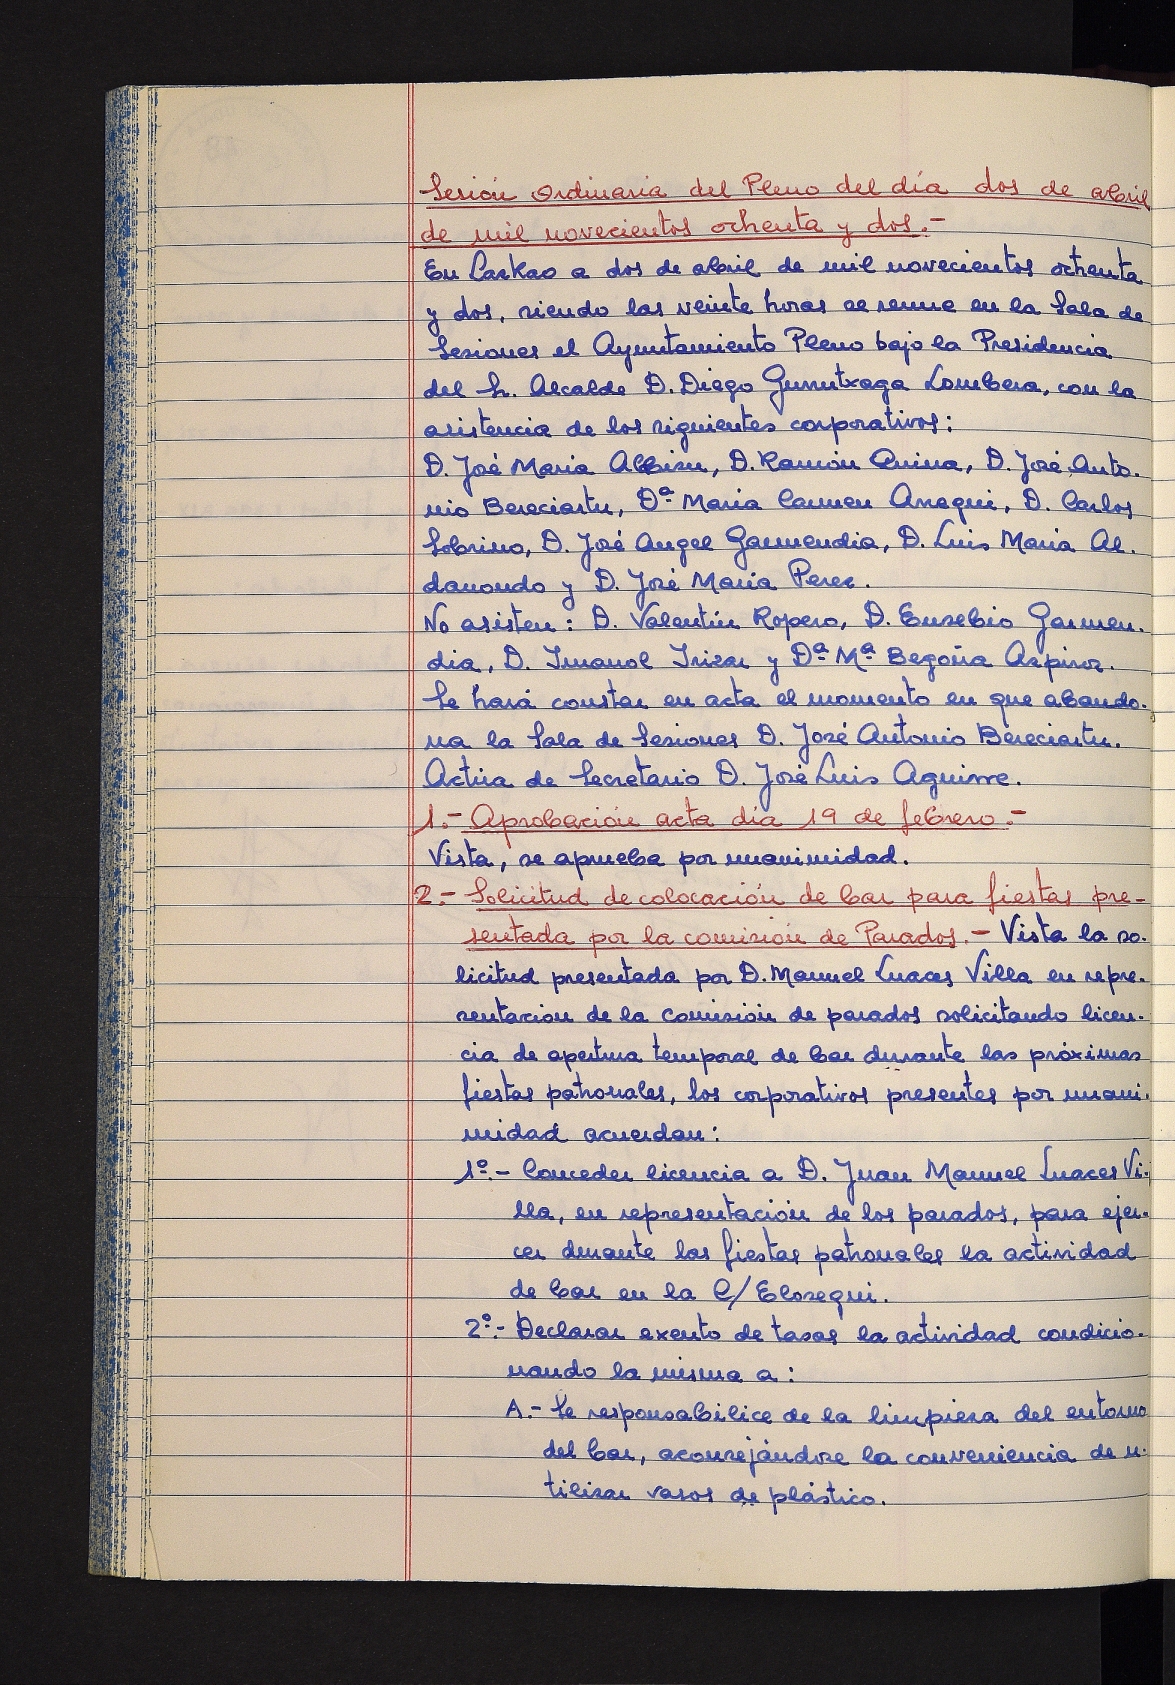 Sesión Ordinaria del Pleno del día dos de abril
de mil novecientos ochenta y dos.-
En Lazkao a dos de abril de mil novecientos ochenta
y dos, siendo las veinte horas se reune en la Sala de
Sesiones el Ayuntamiento Pleno bajo la Presidencia
del Sr. Alcalde D. Diego Gurrutxaga Lombera, con la
asistencia de los siguientes corporativos:
D. José Maria Albisu, D. Ramón Quina, D. José Anto-
nio Bereciartu, Dª Maria Carmen Aseguí, D. Carlos
Sobrino, D. José Angel Garmendia, D. Luis Maria Al-
danondo y D. José Maria Perez.
No asisten: D. Valentín Ropero, D. Eusebio Garmen-
dia, D. Imanol Irizar y Dª Mª Begoña Azpiroz.
Se hará constar en acta el momento en que abando-
na la Sala de Sesiones D. José Antonio Bereciartu.
Actúa de Secretario D. José Luis Aguirre.
1.- Aprobación acta día 19 de febrero.-
Vista, se aprueba por unanimidad.
2.- Solicitud de colocación de bar para fiestas pre-
sentada por la comisión de Parados.- Vista la so-
licitud presentada por D. Manuel Luaces Villa en repre-
sentación de la comisión de parados solicitando licen-
cia de apertura temporal de bar durante las próximas
fiestas patronales, los corporativos presentes por unani-
midad acuerdan:
1º.- Conceder licencia a D. Juan Manuel Luaces Vi-
lla, en representación de los parados, para ejer-
cer durante las fiestas patronales la actividad
de bar en la C/ Elosegui.
2º.- Declarar exento de tasas la actividad condicio-
nando la misma a:
A.- Se responsabilice de la limpieza del entorno
del bar, aconsejándose la conveniencia de u-
tilizar vasos de plástico.